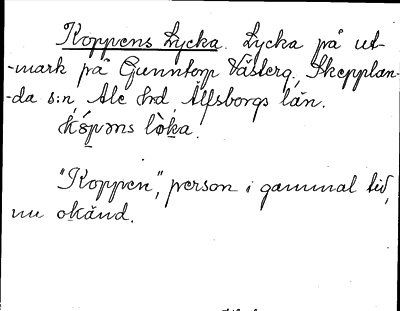 Koppens Lycka. Lycka på ut-
-mark på Gunntorp Västerg, Skepplan-
-da s:n, Ale hrd, Älfsborgs län.
kópəns lòka.
"Koppen", person i gammal tid,
nu okänd.